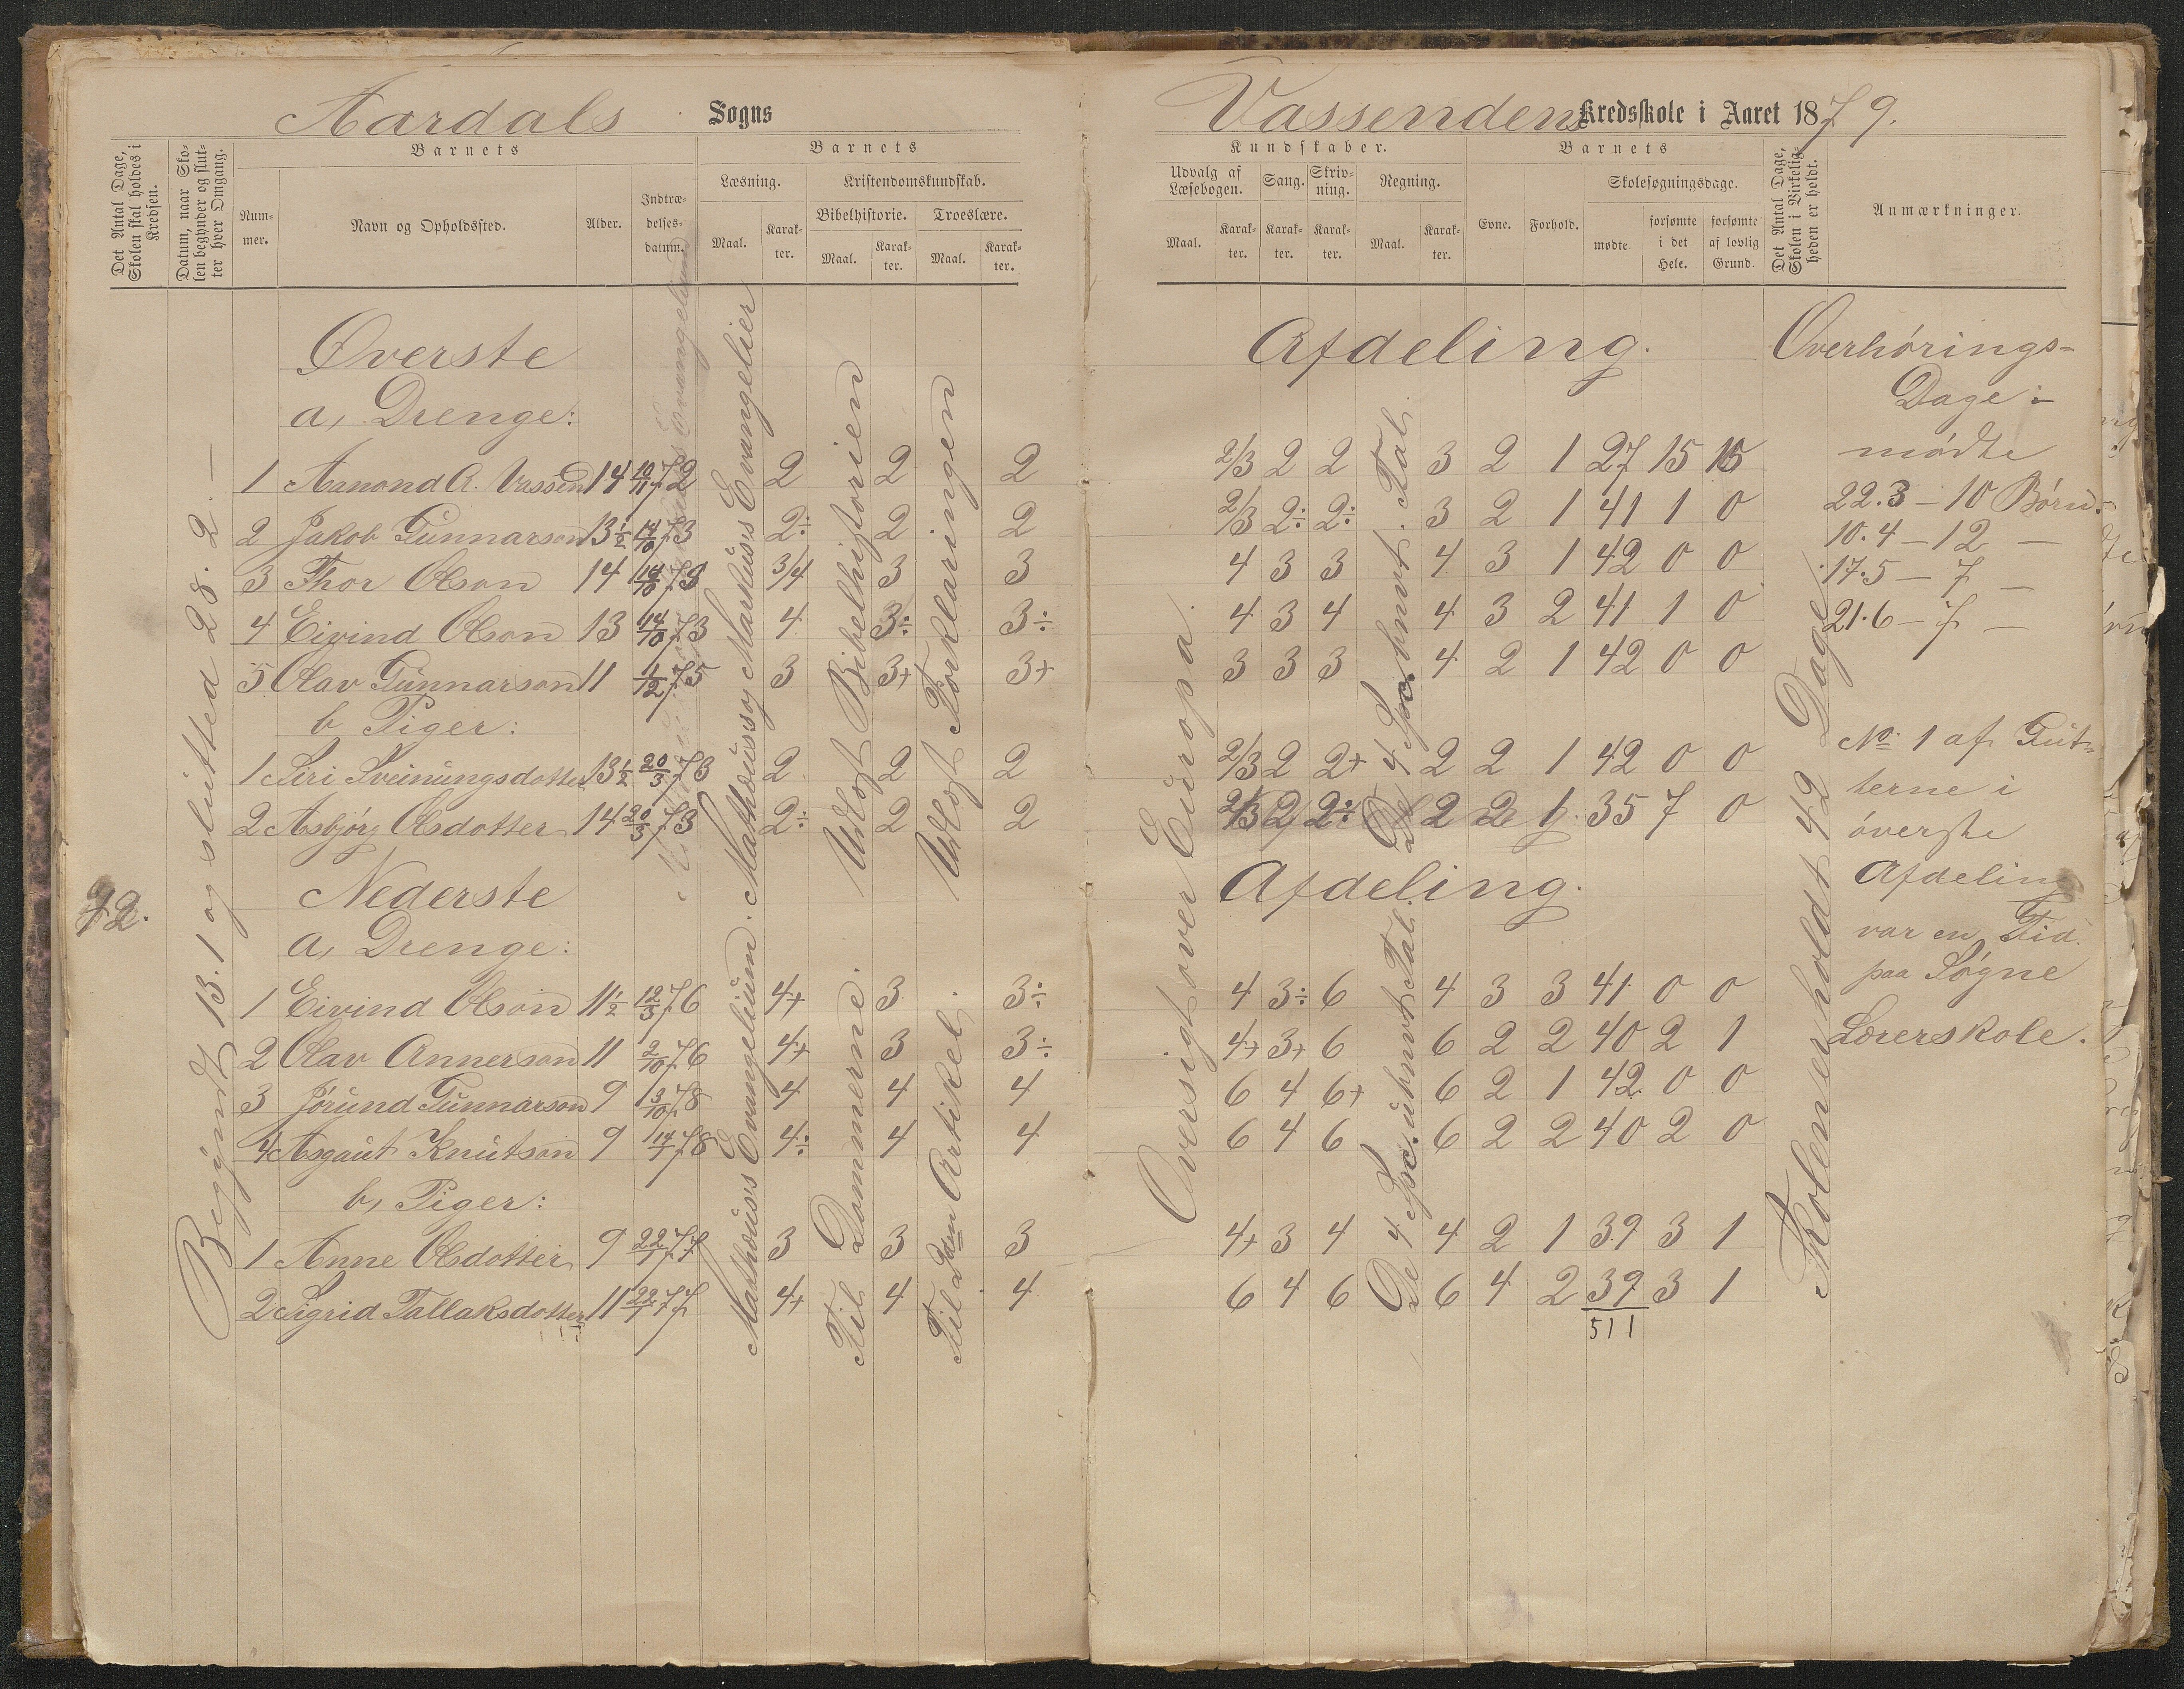 Aardals Sogns
Det Antal Dage, Skolen skal holdes i Kredsen.
Datum, naar Skolen begynder og slutter hver Omgang.
Barnets
Nummer.
Navn og Opholdssted.
Alder.
Indtrædelsesdatum.
Barnets
Læsning.
Kristendomskundskab.
Bibelhistorie.
Troeslære.
Maal.
Karakter.
Maal.
Karakter.
Maal.
Karakter.
42.
Begyndt 13.1 og slutted 28.2.—
Øverste
a, Drenge:
1 Aanond A. Vassen 14 10/11 72 2 2 2
2 Jakob Gunnarson 13½ 14/10 73 2÷ 2 2
3 Thor Olson 14 14/10 73 3/4 3 3
4 Eivind Olson 13 14/10 73 4 3÷ 3÷
5 Olav Gunnarson 11 1/12 75 3 3+ 3+
b, Piger:
1 Siri Sveinungsdotter 13½ 20/3 73 2 2 2
2 Asbjørg Olsdotter 14 20/3 73 2÷ 2 2
Nederste
a, Drenge:
1 Eivind Olson 11½ 12/3 76 4+ 3 3÷
2 Olav Annerson 11 2/10 76 4+ 3 3÷
3 Jørund Gunnarson 9 3/10 78 4 4 4
4 Asgaut Knutson 9 14/1 78 4÷ 4 4
b, Piger:
1 Anne Olsdotter 9 22/1 77 3 3 3
2 Sigrid Tallaksdotter 11 22/1 77 4+ 4 4
Mathæus's og Markus's Evangelier
Mathæus's Evangelium.
Udlagt Bibelhistorien
Til Dommerne.
Udlagt Forklaringen
Til 2den Artikel.
Vassendens Kredsskole i Aaret 1879.
Kundskaber.
Udvalg af Læsebogen.
Sang.
Skrivning.
Regning.
Maal.
Karakter.
Karakter.
Karakter.
Maal.
Karakter.
Barnets
Evne.
Forhold.
Skolesøgningsdage.
mødte
forsømte i det Hele.
forsømte af lovlig Grund.
Det Antal Dage, Skolen i Virkeligheden er holdt.
Anmærkninger.
Afdeling.
2/3 2 2 3 2 1 27 15 15
2/3 2÷ 2÷ 3 2 1 41 1 0
4 3 3 4 3 1 42 0 0
4 3 4 4 3 2 41 1 0
3 3 3 4 2 1 42 0 0
2/3 2 2+ 2 2 1 42 0 0
2/3 2 2÷ 2 2 1 35 7 0
Afdeling.
4 3÷ 6 4 3 3 41 0 0
4+ 3+ 6 6 2 2 40 2 1
6 4 6+ 6 2 1 42 0 0
6 4 6 6 2 2 40 2 0
4+ 3 4 4 2 1 39 3 1
6 4 6 6 4 2 39 3 1
511
Oversigt over Europa.
De 4 Spc. Tal.
De 4 Spc. Tal.
Skolen er holdt 42 Dage
Overhørings-
Dage:
mødte
22.3 – 10 Børn.
10.4 – 12 —
17.5 – 7 —
21.6 – 7 —
No. 1 af Gut-
terne i
øverste
Afdeling
var en Tid
paa Søgne
Lærerskole.